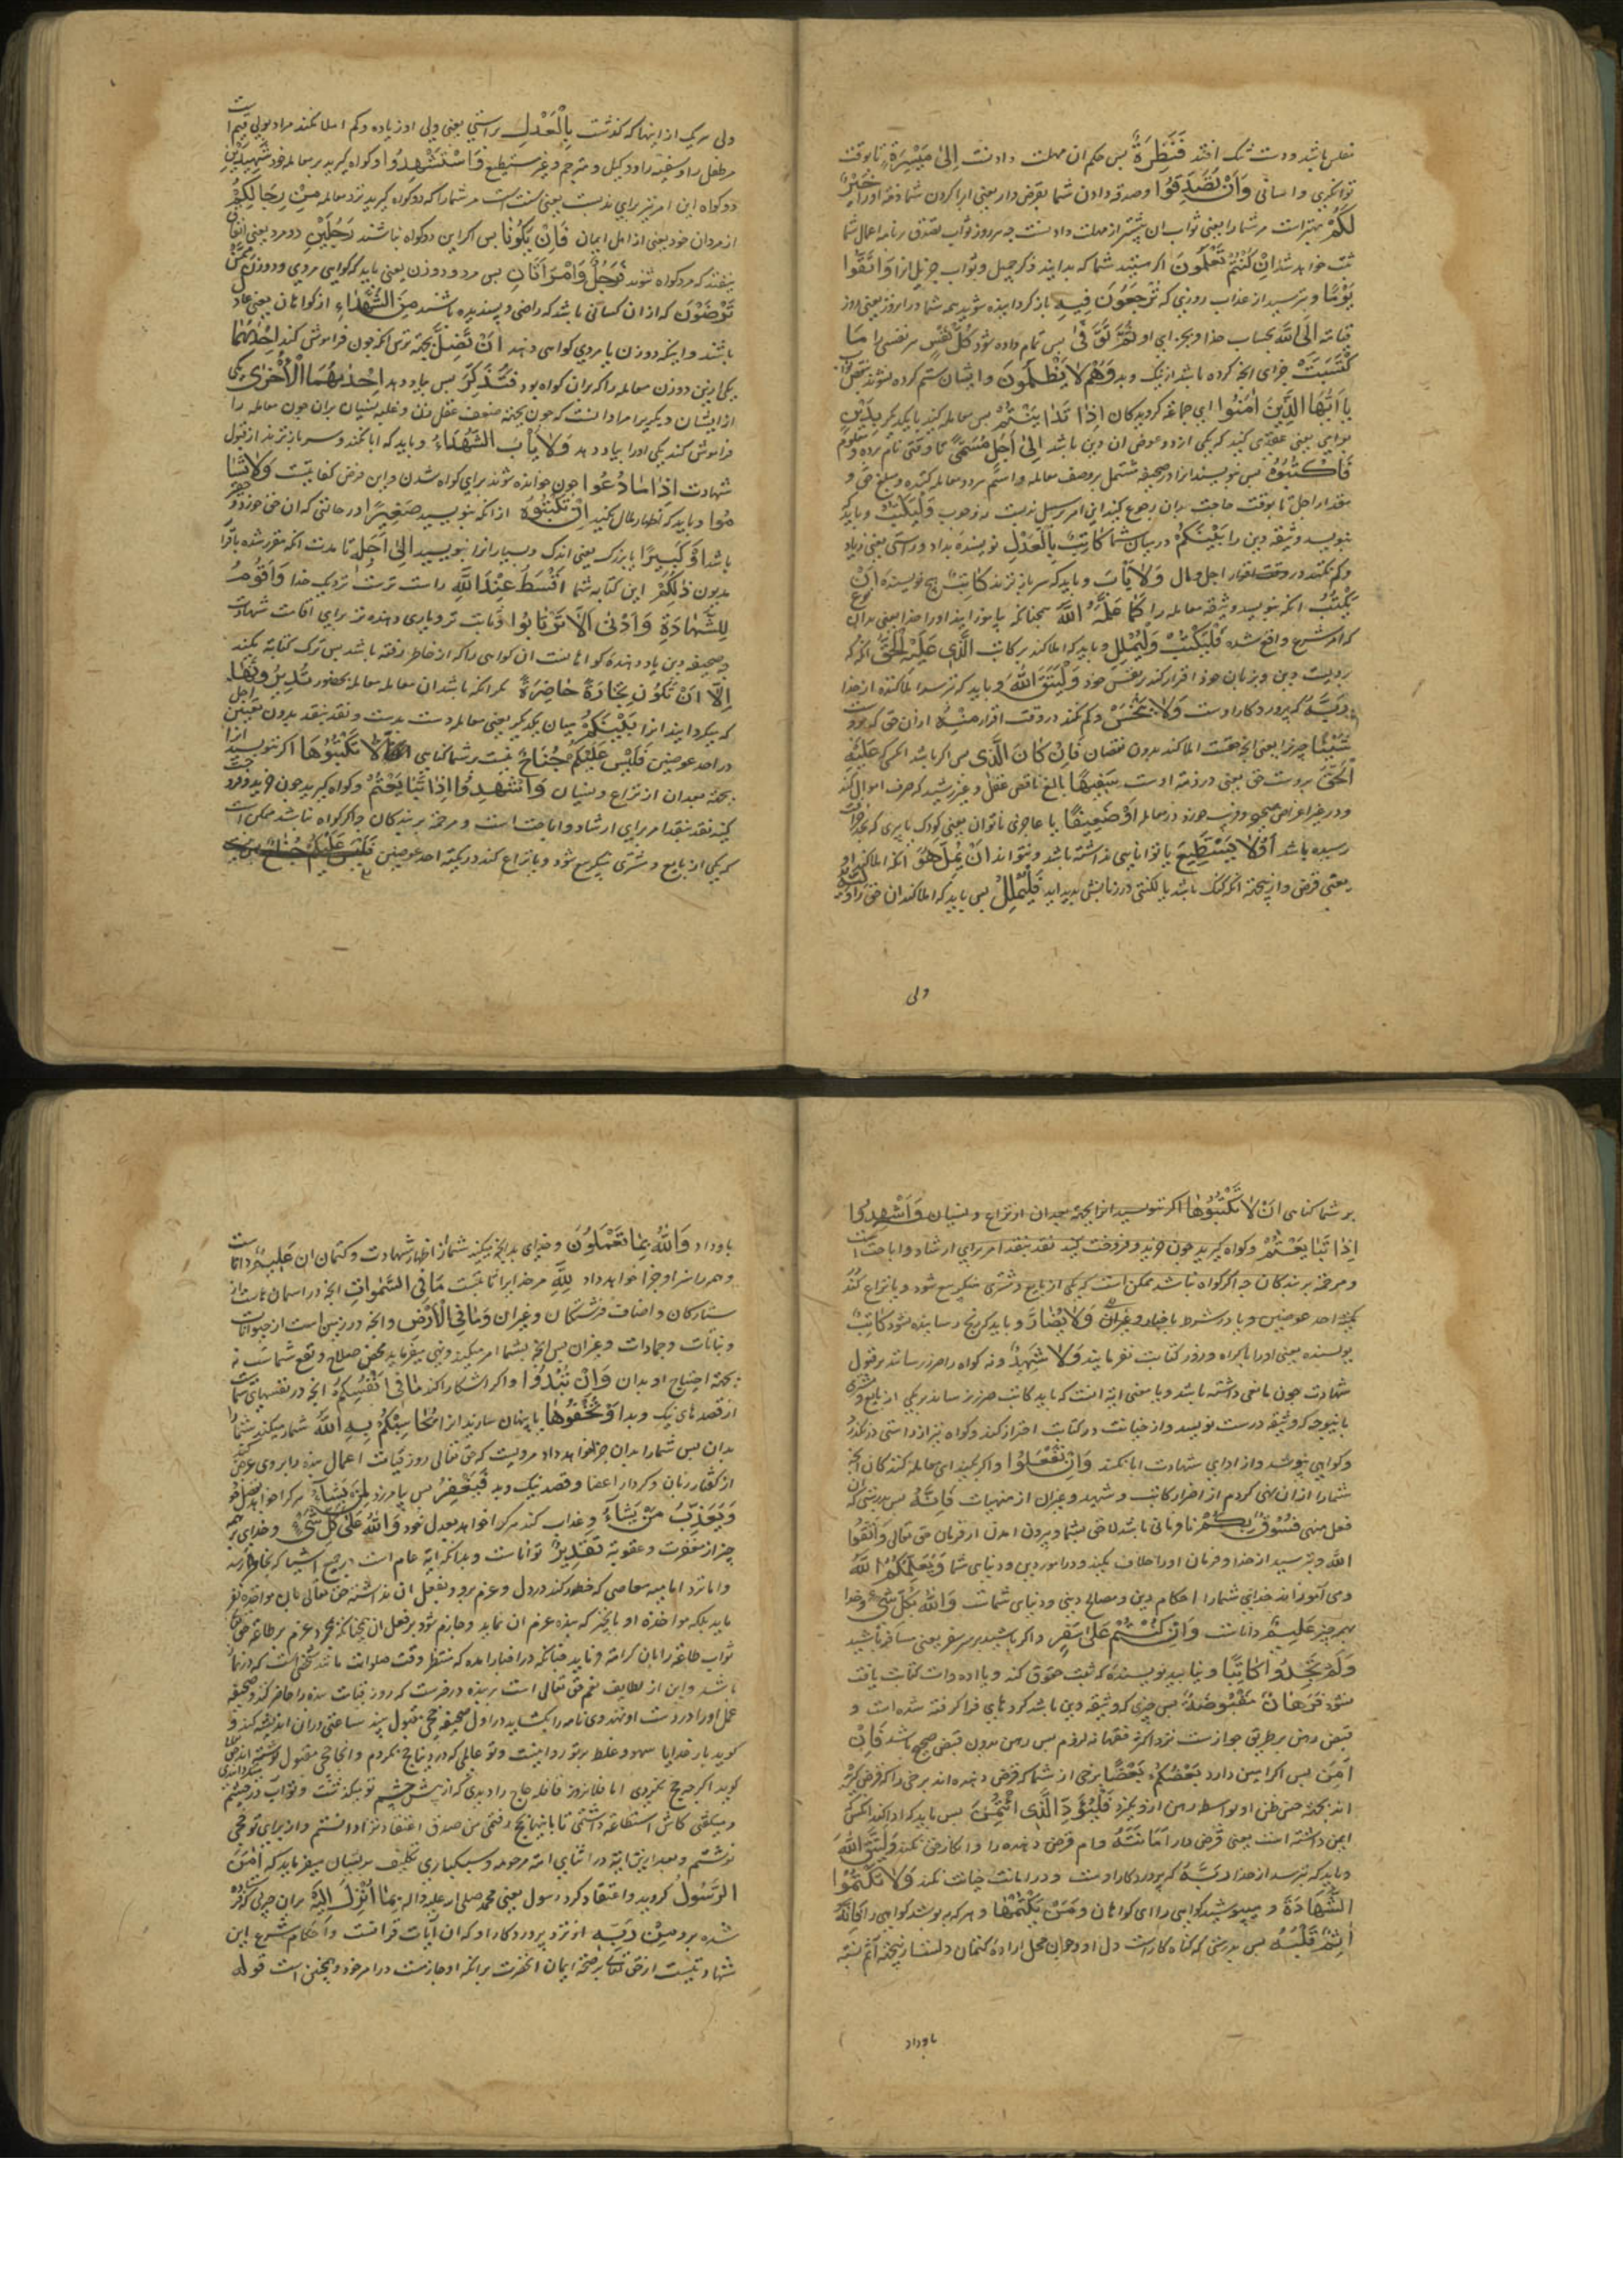 مفلس باشد ودست تنک افتد فَنَظِرَةٌ بس حکم ان مهلت دادنست اِلیٰ مَیْسَرَةٍ تا بوقت
توانکری واسانی وَاَنْ تَصَدَّقُوا وصدقه دادن شما بقرض دار یعنی ابرا کردن شما ذمه اورا خَیْرٌ
لَکُمْ بهتراست مر شما را یعنی ثواب ان بیشتر از مهلت دادنست
ثبت خواهد شد اِنْ کُنْتُمْ تَعْلَمُونَ اکر هستید شما که بدانید ذکر جمیل وثواب جزیل انرا وَاتَّقُوا
یَوْمًا وبترسید از عذاب روزی که تُرْجَعُونَ فِیهِ باز کردانیده شوید همه شما در انروز یعنی روز
قیامة اِلَی اللّٰهِ بحساب خدا وبجزای او ثُمَّ تُوَفّٰی بس تمام داده شود کُلُّ نَفْسٍ هر نفسی را مَا
کَسَبَتْ جزای انچه کرده باشد از نیک وبد وَهُمْ لَا یُظْلَمُونَ وایشان ستم کرده نشوند بنقص ثواب
یَا اَیُّهَا الَّذِینَ اٰمَنُوا ای جماعه کرویدکان اِذَا تَدَایَنْتُمْ بس معامله کنید با یکدیکر بِدَیْنٍ
بوامی یعنی عقدی کنید که یکی از دو عوض ان دین باشد اِلیٰ اَجَلٍ مُسَمًّی تا وقتی نام برده ومعلوم
فَاکْتُبُوهُ بس بنویسید انرا در صحیفه مشتمل بر وصف معامله واسم هر دو معامله کننده ومبلغ حق و
مقدار اجل تا بوقت حاجت بدان رجوع کنید این امر بر سبیل ندبست نه وجوب وَلْیَکْتُبْ وباید که
بنویسد وثیقه دین را بَیْنَکُمْ در میان شما کَاتِبٌ بِالْعَدْلِ نویسنده بداد وراستی یعنی زیاد
وکم نکند در اجل ومال وَلَا یَأْبَ وباید که سر باز نزند کَاتِبٌ هیچ نویسنده اَنْ
یَکْتُبَ انکه بنویسد وثیقه معامله را کَمَا عَلَّمَهُ اللّٰهُ همچنانکه بیاموزانید اورا خدا یعنی بدان نوع
که امر شرع واقع شده فَلْیَکْتُبْ وَلْیُمْلِلِ وباید که املا کند بر کاتب الَّذِی عَلَیْهِ الْحَقُّ انکه که
بر ویست دین وبزبان خود اقرار کند بر نفس خود وَلْیَتَّقِ اللّٰهَ وباید که بترسد املا کننده از خدا
رَبَّهُ که پروردکار اوست وَلَا یَبْخَسْ وکم نکند در وقت اقرار مِنْهُ از ان حق که بر وی است
شَیْئًا چیزی را یعنی انچه هست املا کند بدون نقصان فَاِنْ کَانَ الَّذِی بس اکر باشد انکس که عَلَیْهِ
الْحَقُّ بروست حق یعنی در ذمه اوست سَفِیهًا بالغ ناقص عقل وغیر رشید که صرف اموال کند
ودر غیر اغراض صحیح وفریب خورد در معامله اَوْ ضَعِیفًا یا عاجزی ناتوان یعنی کودک یا پیری که
رسیده باشد اَوْ لَا یَسْتَطِیعُ یا توانایی نداشته باشد ونتواند اَنْ یُمِلَّ هُوَ انکه املا کند او
یعنی قرض دار بجهة انکه کنک باشد یا لکنتی در زبانش بدید اید فَلْیُمْلِلْ بس باید که املا کند ان حق را وَلِیُّهُ
ولی
ولی هر یک از اینها که کذشت بِالْعَدْلِ براستی یعنی ولی او زیاده وکم املا نکند مراد بولی قیم است
مر طفل را وسفیه را ووکیل ومترجم وغیر مستطیع وَاسْتَشْهِدُوا وکواه کیرید بر معامله خود شَهِیدَیْنِ
دو کواه این امر نیز برای ندبست یعنی سنت است مر شما را که دو کواه کیرید نزد معامله مِنْ رِجَالِکُمْ
از مردان خود یعنی از اهل ایمان فَاِنْ لَمْ یَکُونَا بس اکر این دو کواه نباشند رَجُلَیْنِ دو مرد یعنی اتفاق
نیفتد که دو مرد کواه شوند فَرَجُلٌ وَامْرَاَتَانِ بس مرد ودو زن یعنی باید که کواهی مردی ودو زن مِمَّنْ
تَرْضَوْنَ که از ان کسانی باشد که راضی وپسندیده باشند مِنَ الشُّهَدَاءِ از کواهان یعنی عادل
باشند واینکه دو زن با مردی کواهی دهند اَنْ تَضِلَّ بجهة ترس انکه چون فراموش کند اِحْدٰهُمَا
یکی از این دو زن معامله را که بران کواه بود فَتُذَکِّرَ بس بیاد دهد اِحْدٰیهُمَا الْاُخْرٰی یکی
از ایشان دیکری را مراد انست که چون بجهة ضعف عقل زن وغلبه نسیان بران چون معامله را
فراموش کند یکی اورا بیاد دهد وَلَا یَأْبَ الشُّهَدَاءُ وباید که ابا نکنند وسر باز نزنند از قبول
شهادت اِذَا مَا دُعُوا چون خوانده شوند برای کواه شدن واین فرض کفایتست وَلَا تَسْأَ
مُوا وباید که اظهار ملال نکنید اَنْ تَکْتُبُوهُ از انکه بنویسید صَغِیرًا در حالتی که ان حق خورد
باشد اَوْ کَبِیرًا یا بزرک یعنی اندک وبسیار انرا بنویسید اِلیٰ اَجَلِهِ تا مدت انکه مقرر شده باقرار
مدیون ذٰلِکُمْ این کتابه شما اَقْسَطُ عِنْدَ اللّٰهِ راست ترست نزدیک خدا وَاَقْوَمُ
لِلشَّهَادَةِ وَاَدْنیٰ اَلَّا تَرْتَابُوا وثابت تر ویاری دهنده تر برای اقامت شهادت
چه صحیفه دین یاد دهنده کواهانست ان کواهی را که از خاطر رفته باشد بس ترک کتابه نکنند
اِلَّا اَنْ تَکُونَ تِجَارَةً حَاضِرَةً مکر انکه باشد ان معامله معامله بحضور تُدِیرُونَهَا
که میکردانید انرا بَیْنَکُمْ میان یکدیکر یعنی معامله دست بدست ونقد بنقد بدون تعیین اجل
در احد عوضین فَلَیْسَ عَلَیْکُمْ جُنَاحٌ نیست بر شما کناهی اَلَّا تَکْتُبُوهَا اکر ننویسید انرا
بجهة بعد ان از نزاع ونسیان وَاَشْهِدُوا اِذَا تَبَایَعْتُمْ وکواه کیرید چون خرید وفروخت
کنید نقد بنقد امر برای ارشاد واباحت است ومرحمة بر بندکان چه اکر کواه نباشد ممکن است
که یکی از بایع ومشتری منکر بیع شود ویا نزاع کنند در کمیة احد عوضین
بر شما کناهی اَنْ لَا تَکْتُبُوهَا اکر ننویسید انرا بجهة بعد ان از نزاع ونسیان وَاَشْهِدُوا
اِذَا تَبَایَعْتُمْ وکواه کیرید چون خرید وفروخت کنید نقد بنقد امر برای ارشاد واباحت است
ومرحمة بر بندکان چه اکر کواه نباشد ممکن است که یکی از بایع ومشتری منکر بیع شود ویا نزاع کنند
کمیة احد عوضین ویا در شرط یا خیار وغیران وَلَا یُضَارَّ وباید که رنج رسانیده نشود کَاتِبٌ
نویسنده یعنی اورا باکراه وزور کتابت نفرمایند وَلَا شَهِیدٌ ونه کواه را ضرر رسانند بر قبول
شهادت چون مانعی داشته باشد ویا معنی ایه انست که باید کاتب ضرر نرساند بر یکی از بایع ومشتری
باینوجه که وثیقه درست نویسد واز خیانت در کتابت احتراز کند وکواه نیز از راستی در نکذرد
وکواهی نپوشد واز ادای شهادت ابا نکند وَاِنْ تَفْعَلُوا واکر بکنید ای معامله کنندکان انچه
شما را از ان نهی کردم از اضرار کاتب وشهید وغیران از منهیات فَاِنَّهُ بس بدرستی که ان
فعل منهی فُسُوقٌ بِکُمْ نافرمانی باشد لاحق بشما وبیرون امدن از فرمان حق تعالی وَاتَّقُوا
اللّٰهَ وبترسید از خدا وفرمان اورا خلاف نکنید در امور دین ودنیای شما وَیُعَلِّمُکُمُ اللّٰهُ
ومی اموزاند خدای شما را احکام دین ومصالح دینی ودنیای شماست وَاللّٰهُ بِکُلِّ شَیْءٍ وخدا
بهمه چیز عَلِیمٌ داناست وَاِنْ کُنْتُمْ عَلیٰ سَفَرٍ واکر باشید بر سر سفر یعنی مسافر باشید
وَلَمْ تَجِدُوا کَاتِبًا ونیابید نویسنده که ثبت حقوق کند ویا ادوات کتابت یافت
نشود فَرِهَانٌ مَقْبُوضَةٌ بس چیزی که وثیقه دین باشد کروهای فرا کرفته شده است و
قبض رهن بر طریق جوازست نزد اکثر فقها نه لزوم بس رهن بدون قبض صحیح باشد فَاِنْ
اَمِنَ بس اکر ایمن دارد بَعْضُکُمْ بَعْضًا برخی از شما که قرض دهنده اند برخی را که قرض کیرنده
اند بجهة حسن ظن او بواسطه رهن از و نکیرد فَلْیُؤَدِّ الَّذِی اؤْتُمِنَ بس باید که ادا کند انکس که
ایمن داشته است یعنی قرض دار اَمَانَتَهُ وام قرض دهنده را وانکار حق نکند وَلْیَتَّقِ اللّٰهَ
وباید که بترسد از خدا رَبَّهُ که پروردکار اوست ودر امانت خیانت نکند وَلَا تَکْتُمُوا
الشَّهَادَةَ ومپوشید کواهی را ای کواهان وَمَنْ یَکْتُمْهَا وهر که بپوشد کواهی را فَاِنَّهُ
اٰثِمٌ قَلْبُهُ بس بدرستی که کناه کارست دل او وچون محل اراده کتمان دلست ازینجهة اثم نسبة
باو داد
باو داد وَاللّٰهُ بِمَا تَعْمَلُونَ وخدای بدانچه میکنید شما از اظهار شهادت وکتمان ان عَلِیمٌ داناست
وهمه را سزا وجزا خواهد داد لِلّٰهِ مر خدایرا ثابتست مَا فِی السَّمٰوَاتِ انچه در اسمان هاست از
ستارکان واصناف فرشتکان وغیران وَمَا فِی الْاَرْضِ وانچه در زمین است از حیوانات
ونباتات وجمادات وغیران بس انچه بشما امر میکند ونهی میفرماید محض صلاح ونفع شماست نه
بجهة احتیاج او بدان وَاِنْ تُبْدُوا واکر اشکارا کنید مَا فِی اَنْفُسِکُمْ انچه در نفسهای شماست
از قصدهای نیک وبد اَوْ تُخْفُوهُ یا پنهان سازید انرا یُحَاسِبْکُمْ بِهِ اللّٰهُ شمار میکند شما را
بدان بس شما را بدان جزا خواهد داد مرویست که حق تعالی روز قیامت اعمال بنده را بر وی عرض کند
از کفتار زبان وکردار اعضا وقصد نیک وبد فَیَغْفِرُ بس بیامرزد لِمَنْ یَشَاءُ هر کرا خواهد بفضل خود
وَیُعَذِّبُ مَنْ یَشَاءُ وعذاب کند هر کرا خواهد بعدل خود وَاللّٰهُ عَلیٰ کُلِّ شَیْءٍ وخدای بر همه
چیز از مغفرت وعقوبة قَدِیرٌ تواناست وبدانکه ایه عام است در جمیع اشیا
واما نزد امامیه معاصی که خطور کند در دل وعزم برو وبفعل ان نداشته حق تعالی بان مواخذه نفر
ماید بلکه مواخذه او بانچیز که بنده عزم ان نماید وجازم شود بر فعل ان همچنانکه بمجرد عزم بر طاعة حق تعالی
ثواب طاعة را بان کرامة فرماید چنانکه در اخبار امده که منتظر وقت صلوات مانند شخصی است که در نماز
باشد واین از لطایف نعم حق تعالی است بر بنده در خبرست که روز قیامت بنده را حاضر کنند وصحیفه
عمل اورا در دست او نهند وی نامه را بکشاید در اول صحیفه حجی مقبول بیند ساعتی دران اندیشه کند و
کوید بار خدایا سهو وغلط بر تو روا نیست وتو عالمی که در دنیا حج نکردم واینجا حجی مقبول نوشته اند حق تعالی
کوید اکرچه حج نکردی اما فلان روز قافله حاج را دیدی که از پیش چشم تو میکذشت وتو اب در چشم میکردانیدی
ومیکفتی کاش استطاعة داشتمی تا با اینها بحج رفتمی من صدق اعتقاد ترا دانستم واز برای تو حجی
نوشتم وبعد ازین ایة در اثنای امة مرحومه وسبکباری تکلیف بر ایشان میفرماید که اٰمَنَ
الرَّسُولُ کروید واعتقاد کرد رسول یعنی محمد صلی الله علیه واله بِمَا اُنْزِلَ اِلَیْهِ بران چیزی که فرو فرستاده
شده برو مِنْ رَبِّهِ از نزد پروردکار او که ان ایات قرانست واحکام شرع این
شهادتیست از حق تعالی بر صحة ایمان انحضرت بر انکه او جازمست در امر خود وهمچنین است قوله